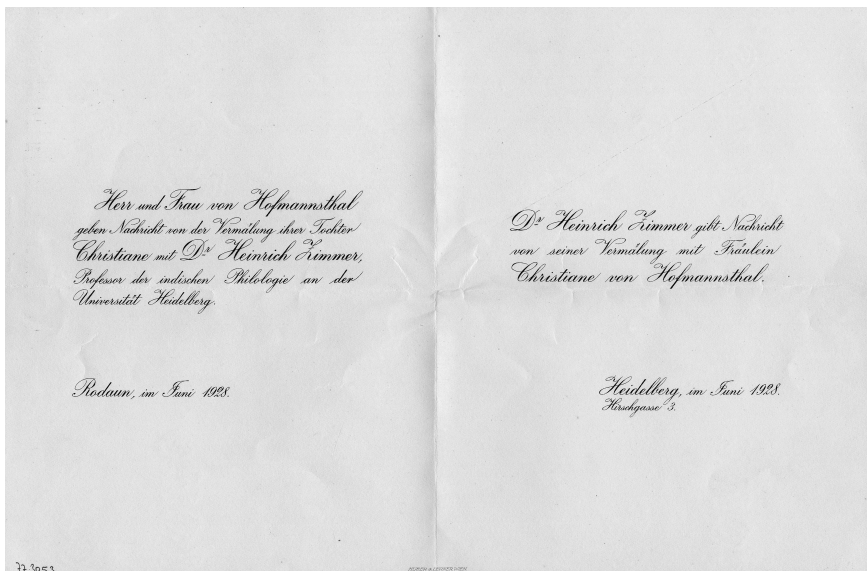 Herr und Frau von Hofmannsthal
geben Nachricht von der Vermälung ihrer Tochter
Christiane mit Dr Heinrich Zimmer,
Professor der indischen Philologie an der
Universität Heidelberg.
Rodaun, im Juni 1928.
Dr Heinrich Zimmer gibt Nachricht
von seiner Vermälung mit Fräulein
Christiane von Hofmannsthal.
Heidelberg, im Juni 1928.
Hirschgasse 3.
77.3053